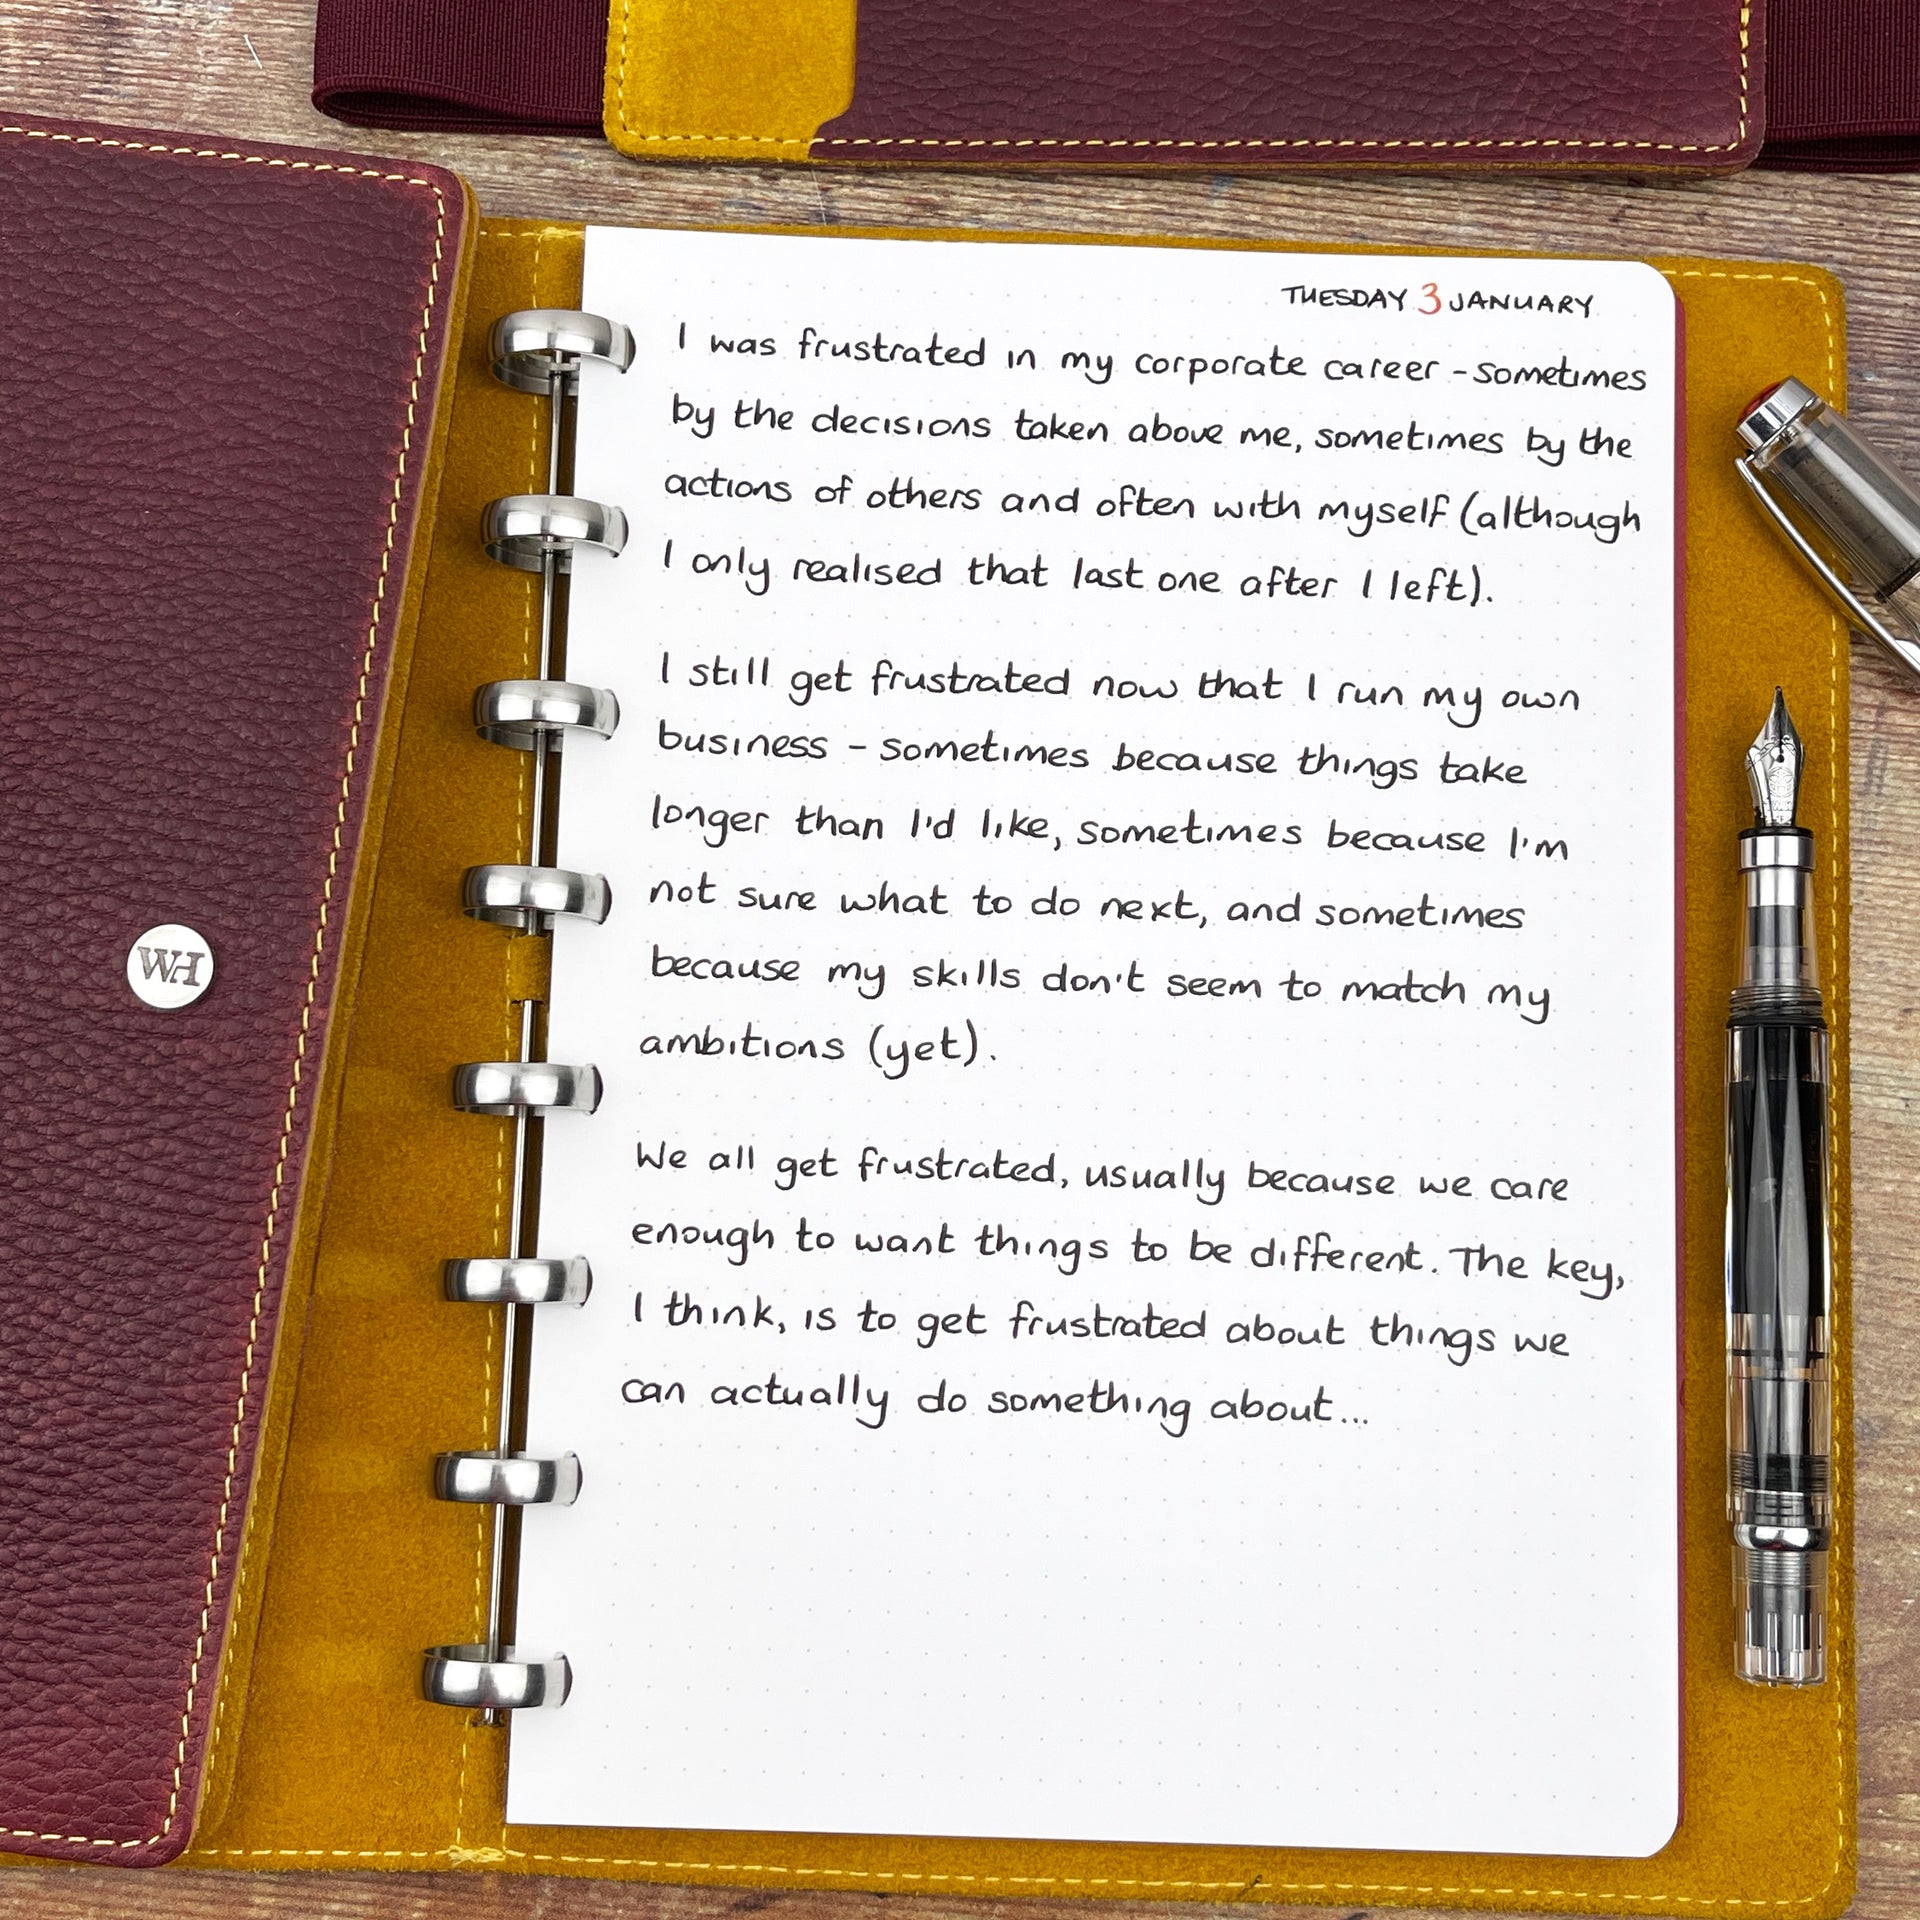 TUESDAY 3 JANUARY
I was frustrated in my corporate career - sometimes
by the decisions taken above me, sometimes by the
actions of others and often with myself (although
I only realised that last one after I left).
I still get frustrated now that I run my own
business - sometimes because things take
longer than I'd like, sometimes because I'm
not sure what to do next, and sometimes
because my skills don't seem to match my
ambitions (yet).
We all get frustrated, usually because we care
enough to want things to be different. The key,
I think, is to get frustrated about things we
can actually do something about...
WH